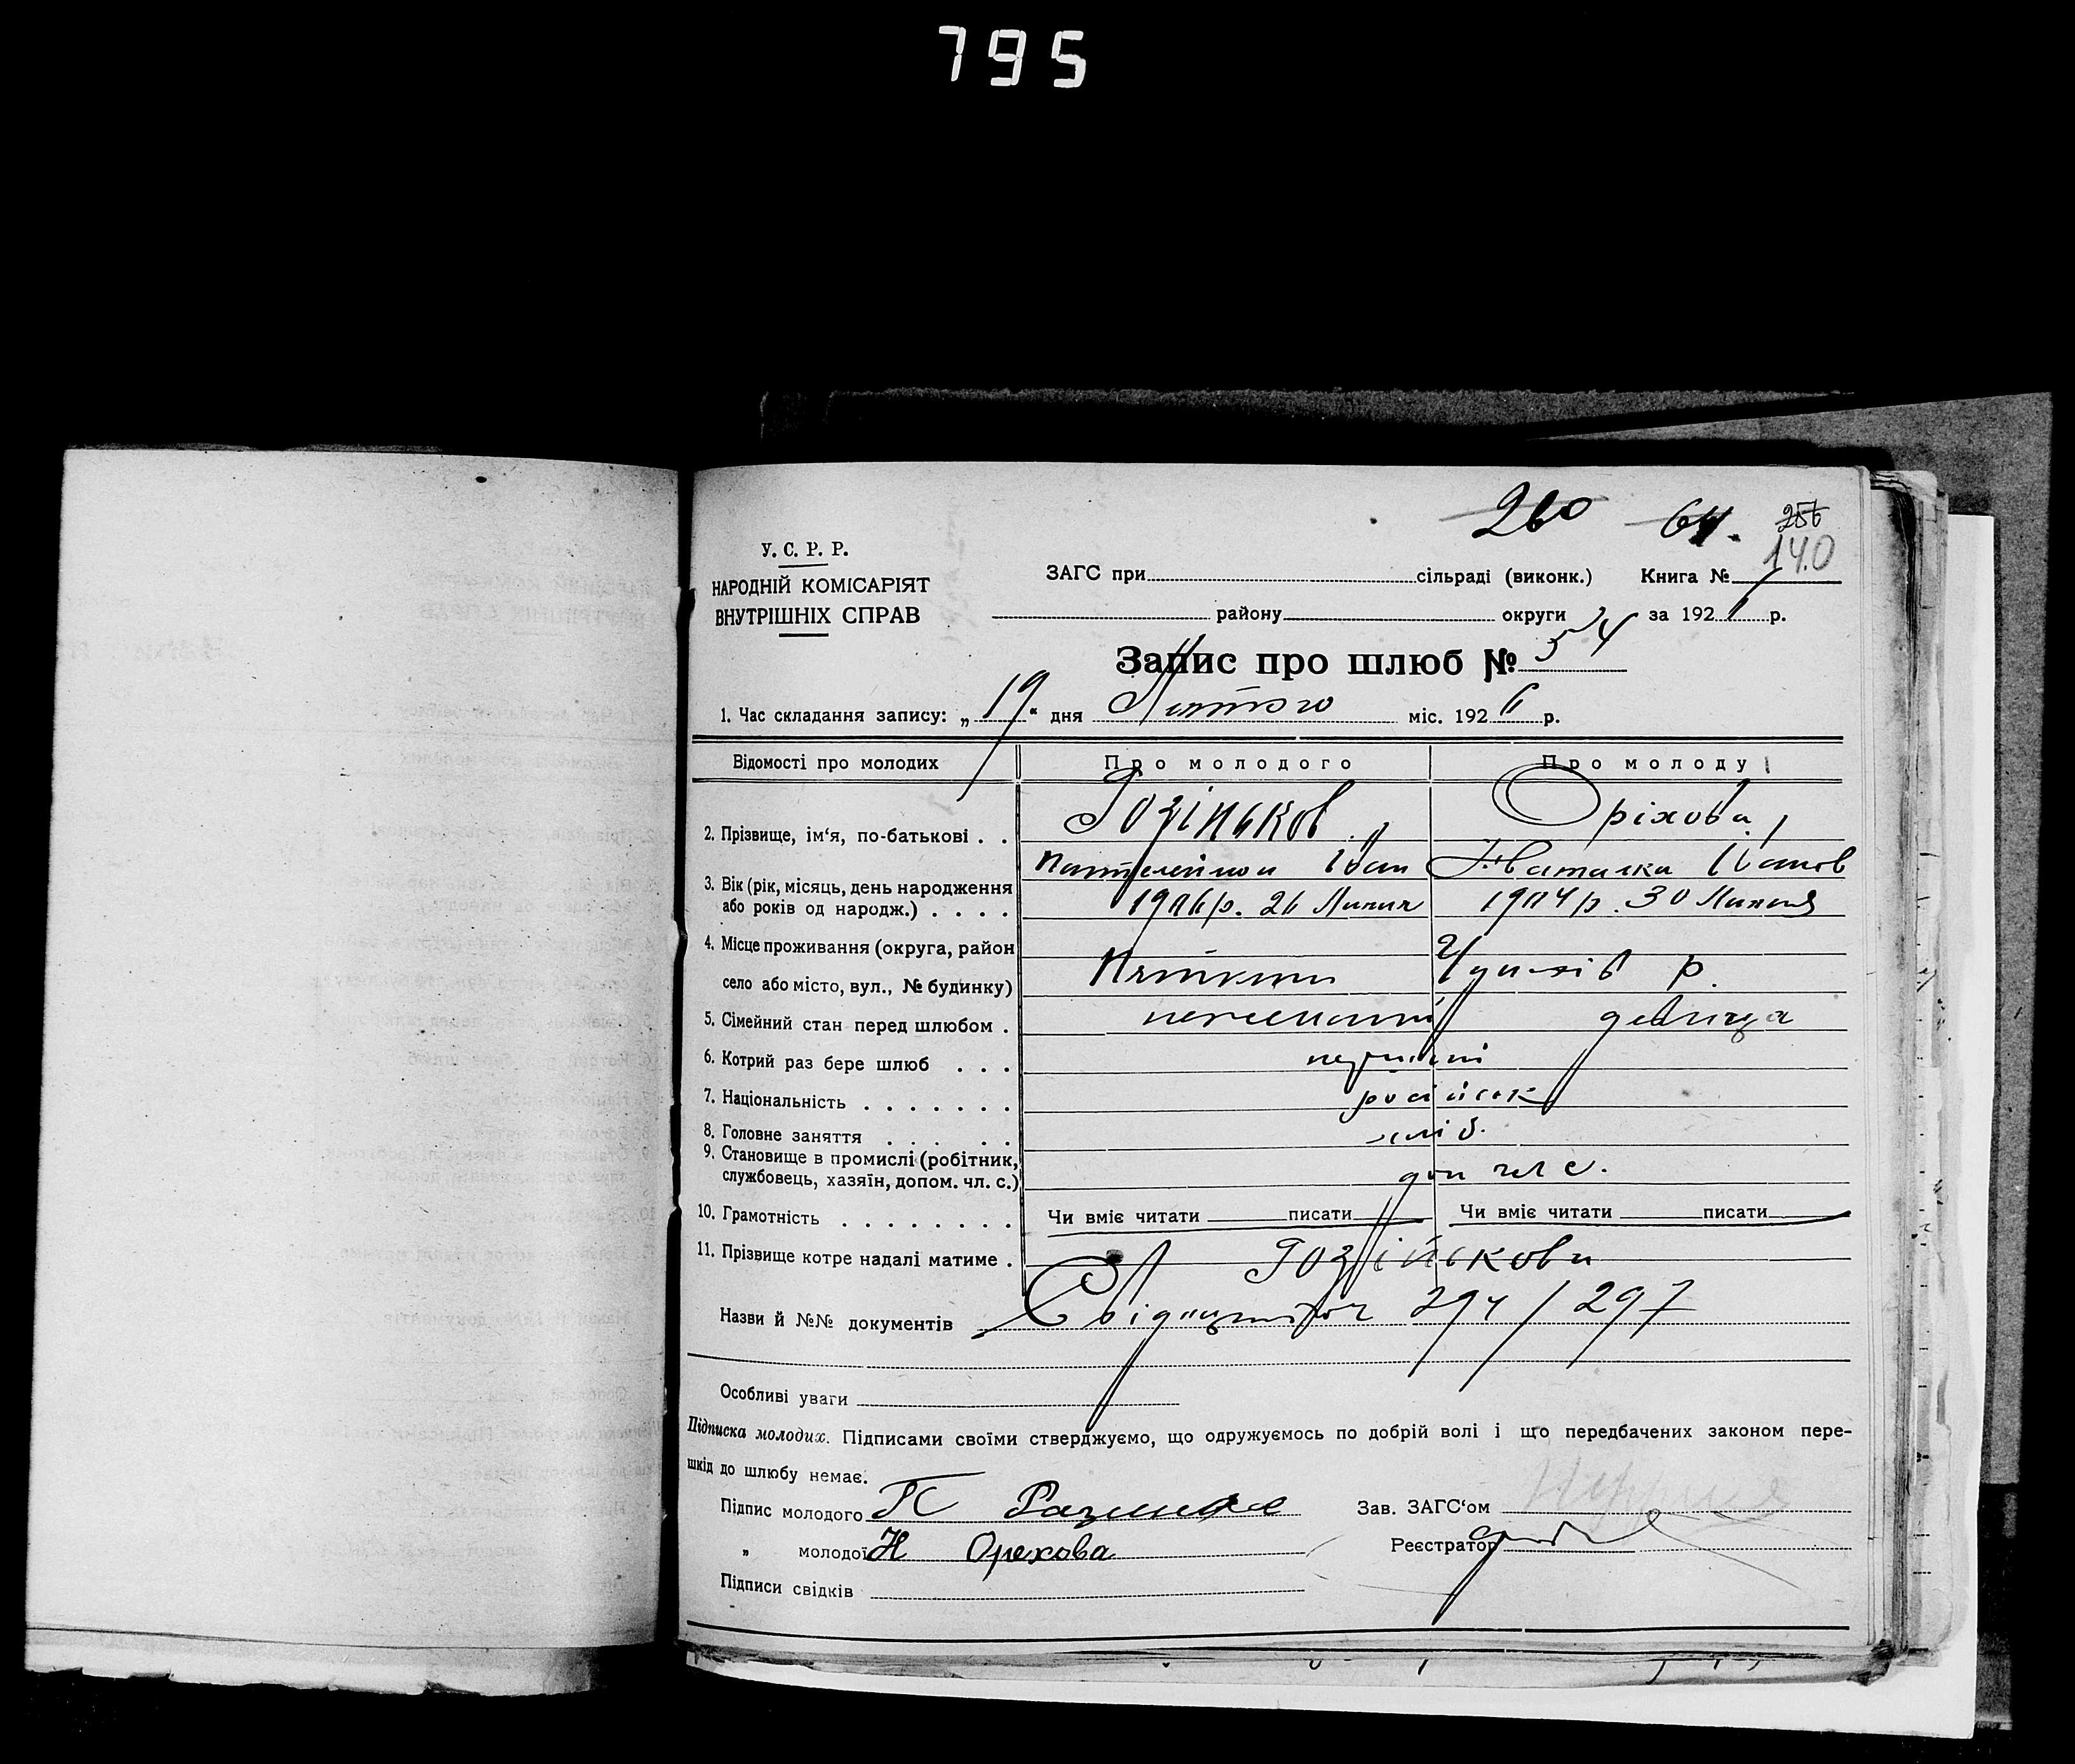 795
260 64. 256
140
У. С. Р. Р.
НАРОДНІЙ КОМІСАРІЯТ
ВНУТРІШНІХ СПРАВ
ЗАГС при сільраді (виконк.) Книга №
району округи за 192 р.
Запис про шлюб № 54
1. Час складання запису: „19“ дня Лютого міс. 1926 р.
Відомості про молодих Про молодого Про молоду
2. Прізвище, ім‘я, по-батькові . . Розіньков Оріхова
Пантелеймон Іван Наталка Іванов
3. Вік (рік, місяць, день народження 1906 р. 26 Липня 1904 р. 30 Липня
або років од народж.) . . . .
4. Місце проживання (округа, район
село або місто, вул., № будинку) Пятки Чуднів р.
5. Сімейний стан перед шлюбом . нежонатий девиця
6. Котрий раз бере шлюб . . .
7. Національність . . . . . . . російськ
8. Головне заняття . . . . . хліб.
9. Становище в промислі (робітник,
службовець, хазяїн, допом. чл. с.) доп чл с.
10. Грамотність . . . . . . . . Чи вміє читати писати Чи вміє читати писати
11. Прізвище котре надалі матиме .
Назви й №№ документів 294/297
Особливі уваги
Підписка молодих. Підписами своїми стверджуємо, що одружуємось по добрій волі і що передбачених законом пере-
шкід до шлюбу немає.
Підпис молодого П Зав. ЗАГС‘ом
„ молодої Н Орехова Реєстратор
Підписи свідків